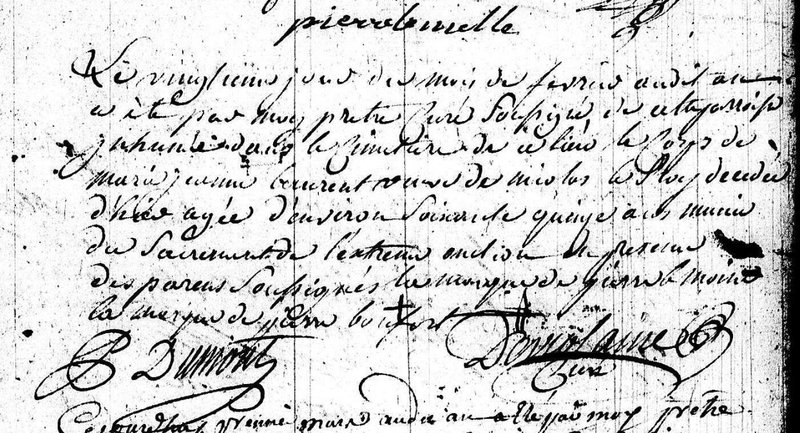 pierre lemelle
Le vingtieme jour du mois de fevrier audit an
a été par moy pretre Curé Soussigné de cette parroisse
inhumée dans le Cimetiere de ce lieu le Corps de
marie jeanne laurent veuve de nicolas le Ploy decedée
d'hier agée d'environ Soixante quinze ans munie
du Sacrement de l'extreme onction en presence
des parens Soussignés la marque de pierre le moine
la marque de pierre bonfort
P Dumont
Curé
premier mars audit an a été par moy pretre